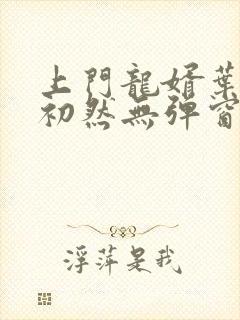 上門龍婿葉
初然無彈窗
浮萍是我